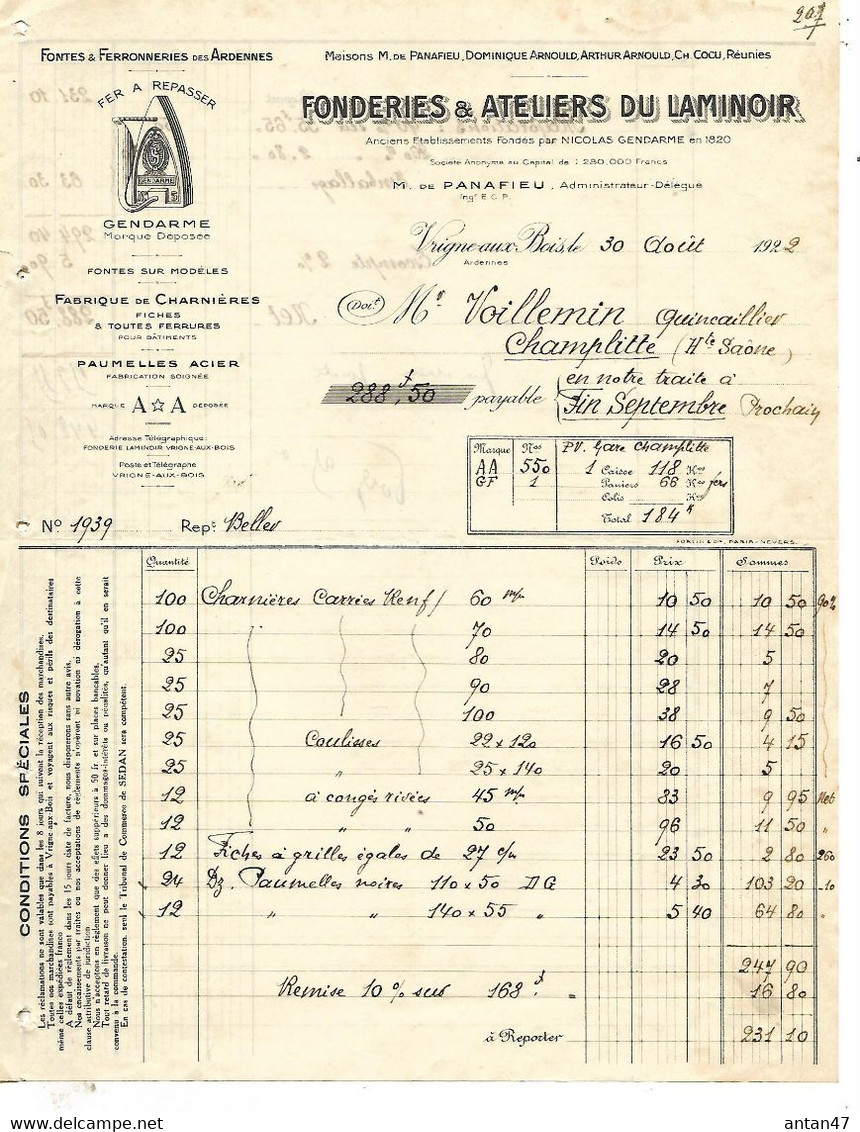 207
FONTES & FERRONNERIES DES ARDENNES
Maisons M. DE PANAFIEU, DOMINIQUE ARNOULD, ARTHUR ARNOULD, CH. COCU, Réunies
FER A REPASSER
GENDARME
5
GENDARME
Marque Déposée
FONDERIES & ATELIERS DU LAMINOIR
Anciens Etablissements Fondés par NICOLAS GENDARME en 1820
Société Anonyme au Capital de 1.280.000 Francs
M. DE PANAFIEU, Administrateur-Délégué
Ingr E.C.P.
Vrigne-aux-Bois le 30 Août 1922
Ardennes
FONTES SUR MODÈLES
FABRIQUE DE CHARNIÈRES
FICHES
& TOUTES FERRURES
POUR BÂTIMENTS
PAUMELLES ACIER
FABRICATION SOIGNÉE
MARQUE A☆A DÉPOSÉE
Adresse Télégraphique:
FONDERIE LAMINOIR VRIGNE-AUX-BOIS
Poste et Télégraphe
VRIGNE-AUX-BOIS
Doit Mr Voillemin quincaillier
Champlitte (Hte Saône)
288f,50 payable en notre traite à
Fin Septembre Prochain
Marque Nos P.V. Gare Champlitte
AA 550 1 Caisse 118 Kos
GF 1 Paniers 66 Kos fers
Colis Kos
Total 184 K
No 1939 Rept Beller
FORTIN & Cie, PARIS-NEVERS.
Quantité Poids Prix Sommes
100 Charnières Carrées 60 m/m 10 50 10 50 90%
100 " 70 14 50 14 50
25 80 20 5
25 90 28 7
25 100 38 9 50
25 Coulisses 22 x 120 16 50 4 15
25 " 25 x 140 20 5
12 à congés rivées 45 m/m 83 9 95 Net
12 " " 50 96 11 50 "
12 Fiches à grilles égales de 27 c/m 23 50 2 80 260
24 Dz. Paumelles noires 110 x 50 DG 4 30 103 20 -10
12 " " 140 x 55 " 5 40 64 80 "
247 90
Remise 10 % sur 168 f = 16 80
à Reporter 231 10
CONDITIONS SPÉCIALES
Les réclamations ne sont valables que dans les 8 jours qui suivent la réception des marchandises.
Toutes nos marchandises sont payables à Vrigne-aux-Bois et voyagent aux risques et périls des destinataires
même celles expédiées franco
A défaut de règlement dans les 15 jours date de facture, nous disposerons sans autre avis.
Nos encaissements par traites ou nos acceptations de règlements n'opèrent ni novation ni dérogation à cette
clause attributive de juridiction
Nous n'acceptons en règlement que des effets supérieurs à 50 fr. et sur places bancables.
Tout retard de livraison ne peut donner lieu à des dommages-intérêts ou pénalités, qu'autant qu'il en serait
convenu à la commande.
En cas de contestation, seul le Tribunal de Commerce de SEDAN sera compétent.
antan47